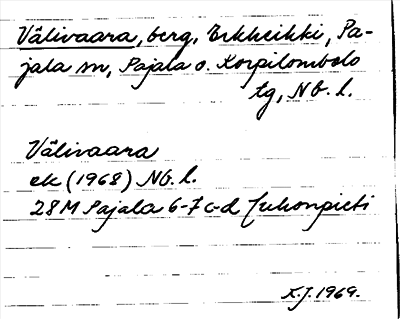 Välivaara, berg, Erkheikki, Pa-
jala sn, Pajala o. Korpilombolo
tg, Nb. l.
Välivaara
ek (1968) Nb. l.
28M Pajala 6-7 c-d Juhonpieti
K.J. 1969.